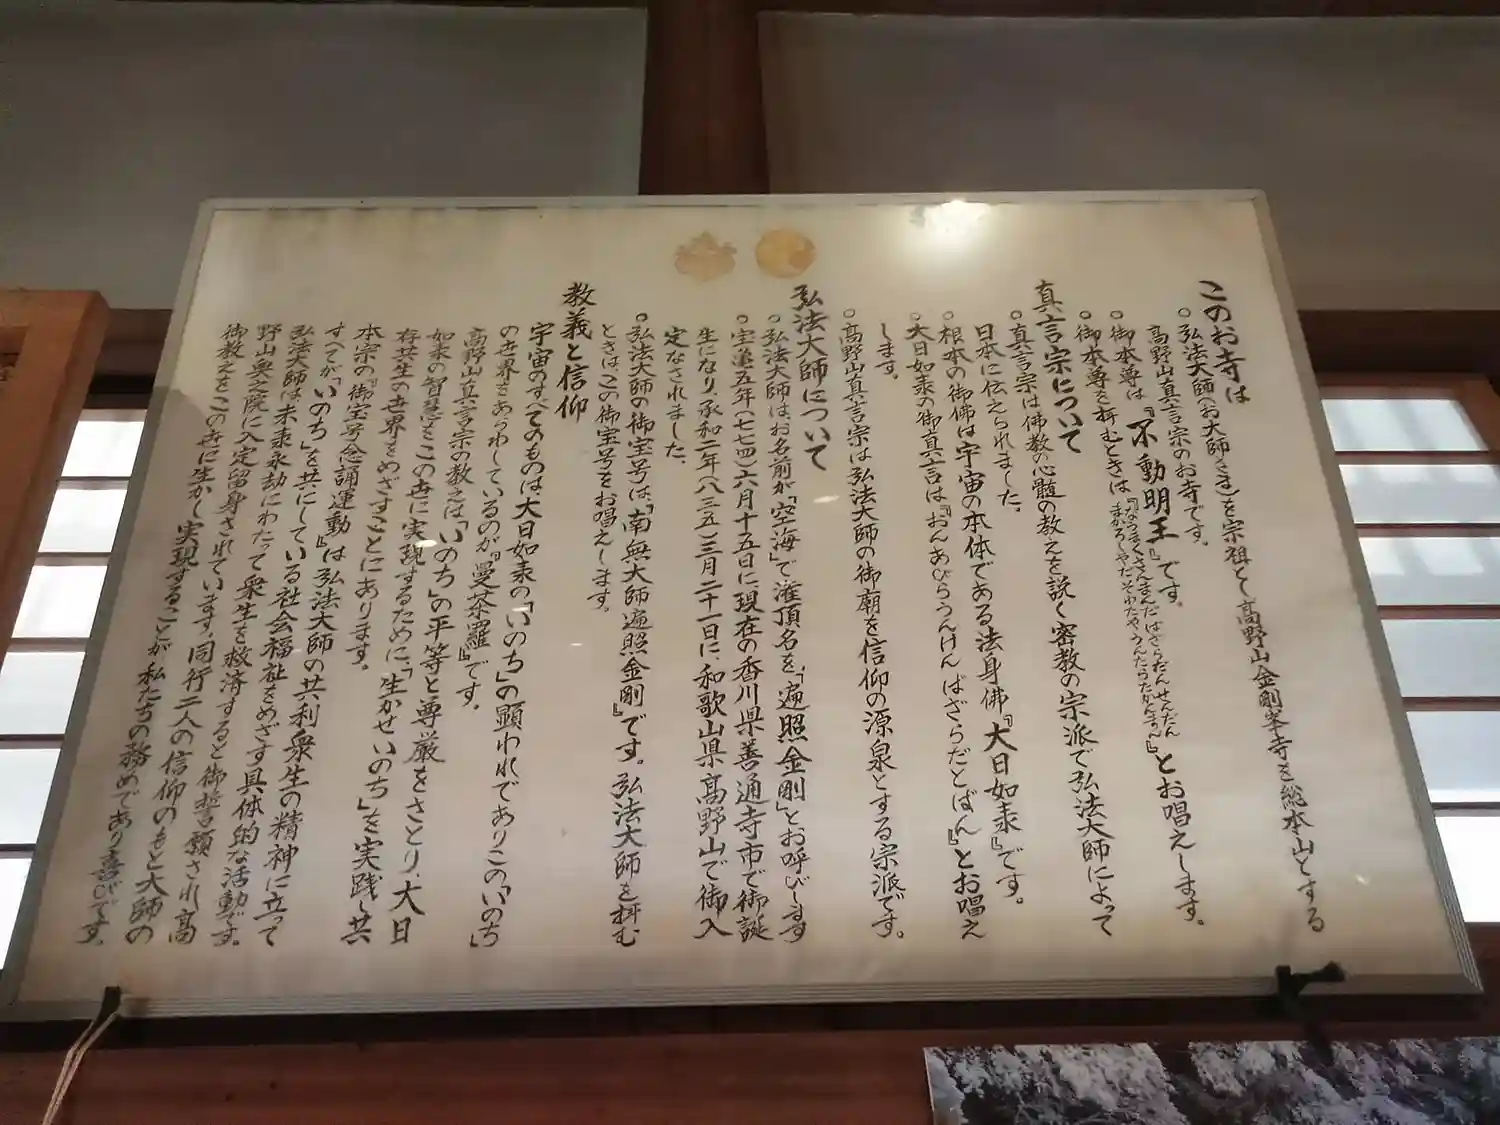 このお寺は
○弘法大師(お大師さま)を宗祖とし高野山金剛峯寺を総本山とする
高野山真言宗のお寺です。
○御本尊は『不動明王』です。
○御本尊を拝むときは『なうまくさんまんだばざらだんせんだん
まかろしやだそわたやうんたらたかんまん』とお唱えします。
真言宗について
○真言宗は佛教の心髄の教えを説く密教の宗派で弘法大師によって
日本に伝えられました。
○根本の御佛は宇宙の本体である法身佛『大日如来』です。
○大日如来の御真言は『おんあびらうんけんばざらだとばん』とお唱え
します。
○高野山真言宗は弘法大師の御廟を信仰の源泉とする宗派です。
弘法大師について
○弘法大師はお名前が「空海」で灌頂名を「遍照金剛」とお呼びします
○宝亀五年(七七四)六月十五日に現在の香川県善通寺市で御誕
生になり、承和二年(八三五)三月二十一日に、和歌山県高野山で御入
定なされました。
○弘法大師の御宝号は、『南無大師遍照金剛』です。弘法大師を拝む
ときは、この御宝号をお唱えします。
教義と信仰
宇宙のすべてのものは、大日如来の「いのち」の顕われでありこの「いのち」
の世界をあらわしているのが『曼荼羅』です。
高野山真言宗の教えは「いのち」の平等と尊厳をさとり、大日
如来の智慧をこの世に実現するために、「生かせいのち」を実践し共
存共生の世界をめざすことにあります。
本宗の『御宝号念誦運動』は弘法大師の共利衆生の精神に立って
すべてが「いのち」を共にしている社会福祉をめざす具体的な活動です。
弘法大師は未来永劫にわたって衆生を救済すると御誓願され高
野山奥之院に入定留身されています。同行二人の信仰のもと大師の
御教えをこの世に生かし実現することが私たちの務めであり喜びです。